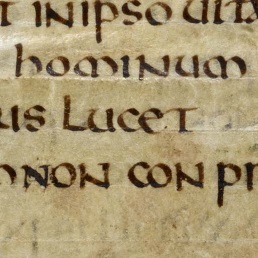 t inipso uita
hominum
us lucet
m non con pr